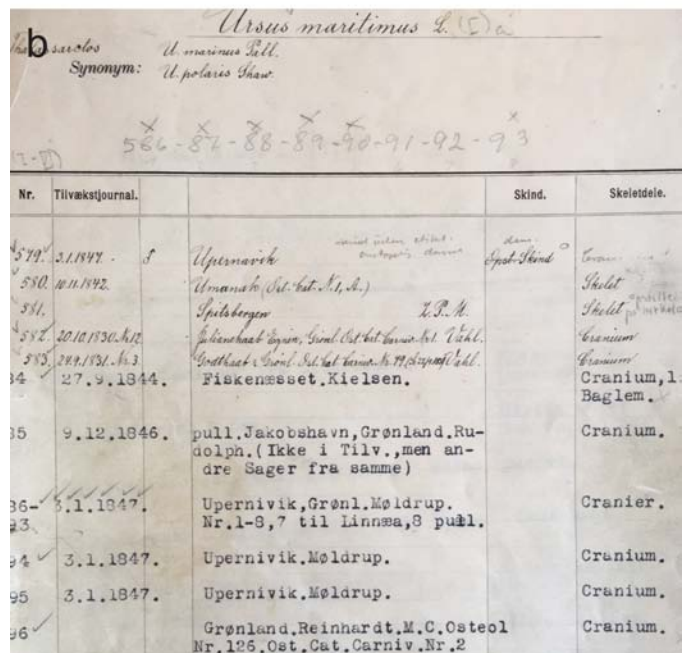 b
Ursus maritimus L. (I)
U. marinus Pall.
Synonym: U. polaris Shaw.
586-87-88-89-90-91-92-93
Nr. Tilvækstjournal. Skind. Skeletdele.
579. 3.1.1847. Upernavik Opst. Skind
580. 10.11.1842. Umanak (Del. Cat. N.1, A.) Skelet
581. Spitsbergen Z.P.M. Skelet
582. 20.10.1830. Nr.12. Julianehaab Grønl. Ost. Cat. Carniv. Nr.1. Vahl. Cranium
583. 24.9.1831. Nr.3. Godthaab Grønl. Cat. Carniv. Nr. Vahl. Cranium
84 27.9.1844. Fiskenæsset.Kielsen. Cranium,1.
Baglem.
85 9.12.1846. pull.Jakobshavn,Grønland.Ru- Cranium.
dolph.(Ikke i Tilv.,men an-
dre Sager fra samme)
86- 3.1.1847. Upernivik,Grønl.Møldrup. Cranier.
93 Nr.1-8,7 til Linnæa,8 pull.
94 3.1.1847. Upernivik.Møldrup. Cranium.
95 3.1.1847. Upernivik.Møldrup. Cranium.
96 Grønland.Reinhardt.M.C.Osteol Cranium.
Nr.126.Ost.Cat.Carniv.Nr.2